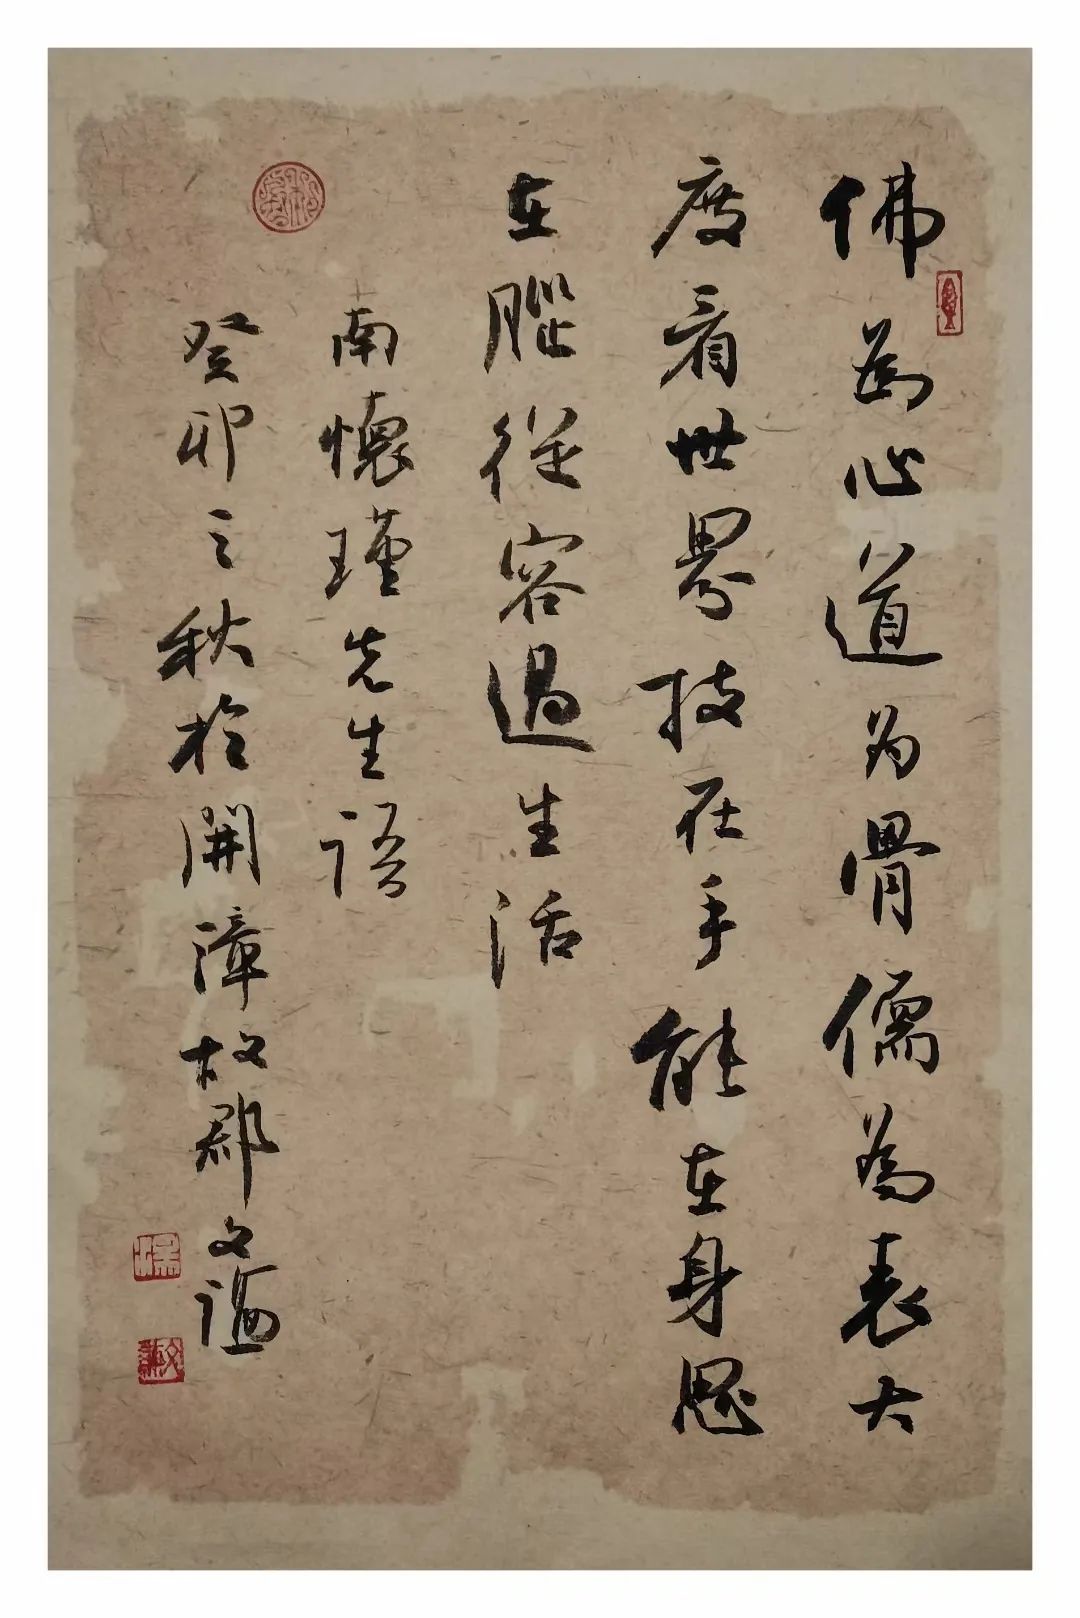 佛為心道为骨儒為表大
度看世界技在手能在身思
在腦從容過生活
南懷瑾先生語
癸卯之秋於開漳故郡文謙